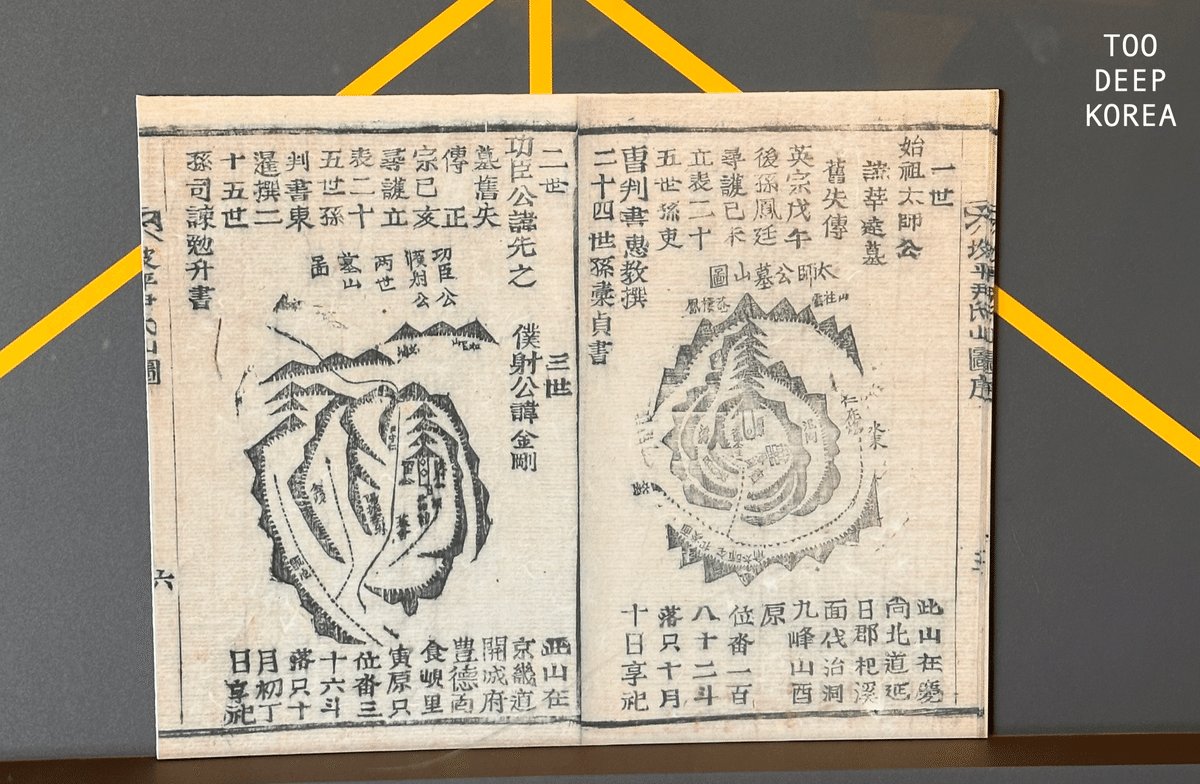 TOO
DEEP
KOREA
一世
始祖太師公
諱莘達墓
舊失傳
英宗戊午
後孫鳳廷
尋護己未
立表二十
五世孫吏
曺判書惠教撰
二十四世孫稟貞書
太師公墓山圖
此山在慶
尙北道延
日郡杞溪
面伐治洞
九峰山酉
原
位畓一百
八十二斗
落只十月
十日享祀
二世
功臣公諱先之
三世
僕射公諱金剛
墓舊失
傳正
宗己亥
尋護立
表二十
五世孫
判書東
暹撰二
十五世
孫司諫勉升書
功臣公
僕射公
兩世
墓山
圖
此山在
京畿道
開城府
豊德面
食峴里
寅原只
位畓三
十六斗
落只十
月初丁
日享祀
六